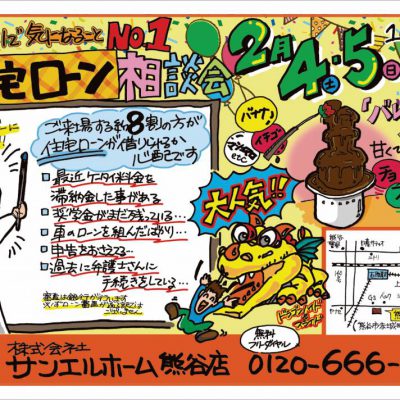 に気になること
No.1
宅ローン
相談会
2月4土・5日
ご来場する約8割の方が
住宅ローンが借りられるか
心配です
最近ケータイ料金を
滞納した事がある
奨学金がまだ残っている…
車のローンを組んだばかり…
申告をおさえてる…
過去に弁護士さんに
手続きをしている…
審査は銀行が行います
バナナ
イチゴ
マシュマロ
etc
「バレ
甘くて
チョ
大人気!!
無料
フリーダイヤル
株式会社
サンエルホーム 熊谷店
0120-666-